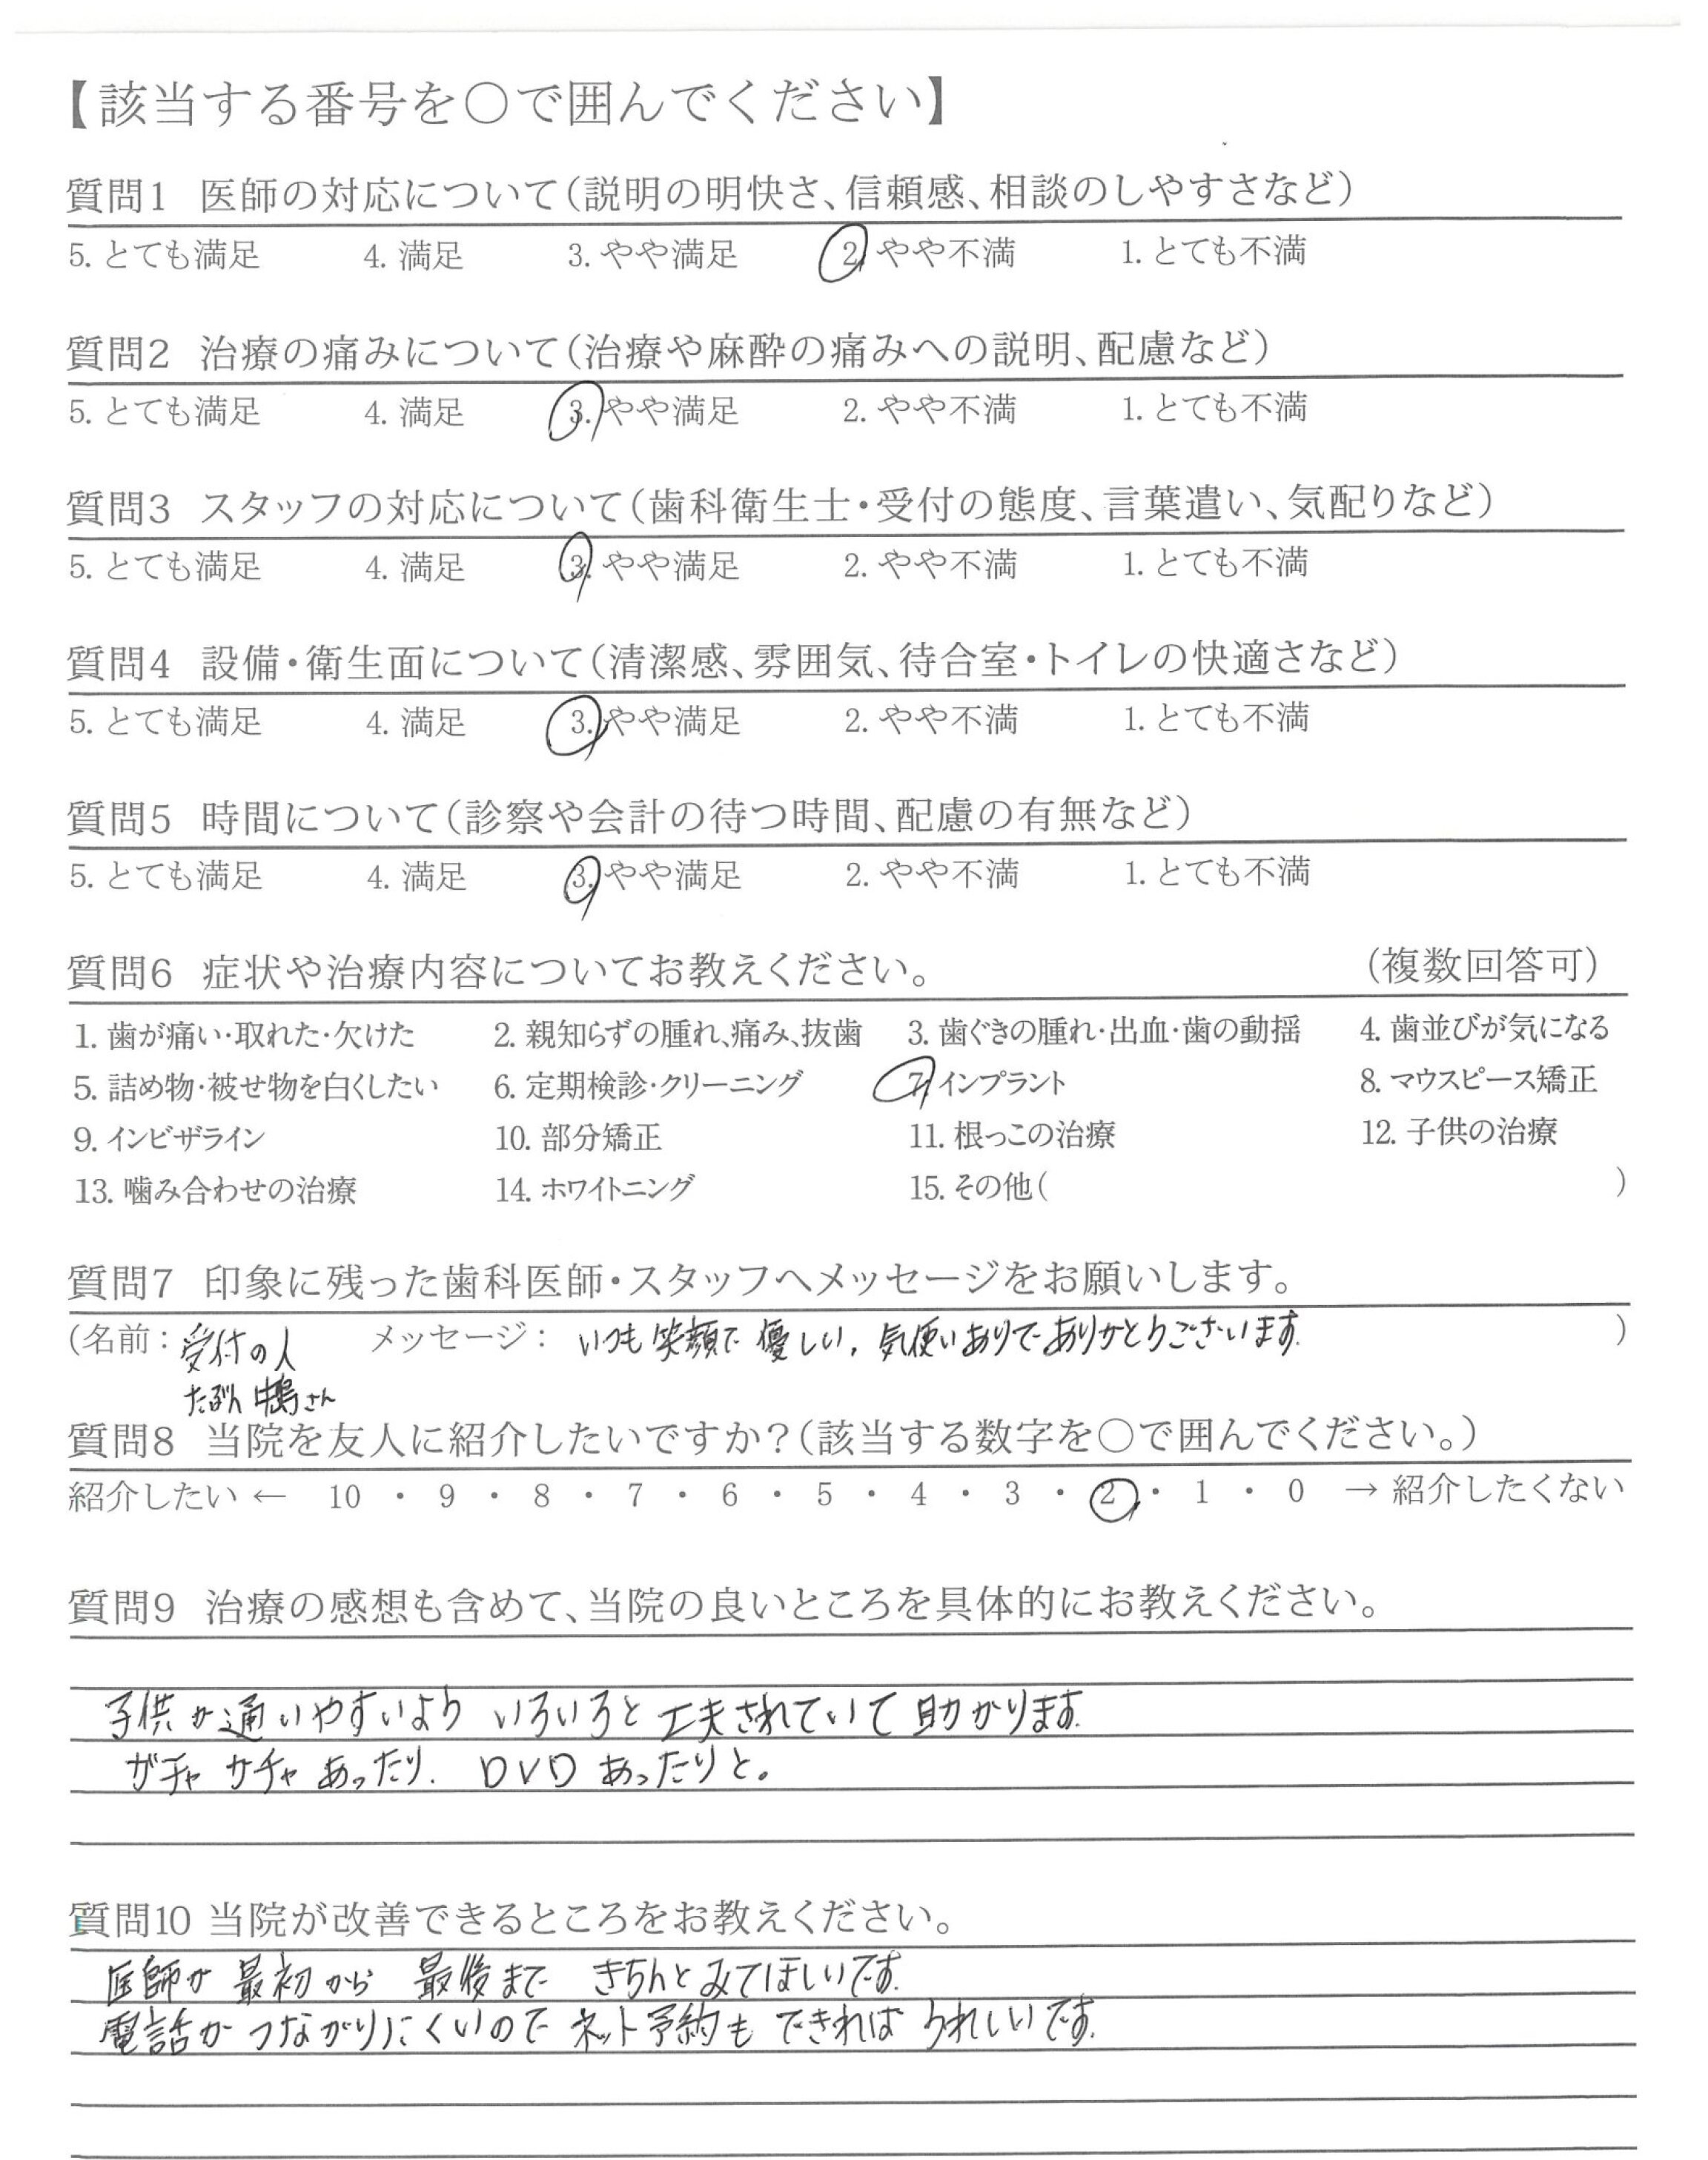 【該当する番号を○で囲んでください】
質問1 医師の対応について(説明の明快さ、信頼感、相談のしやすさなど)
5. とても満足 4. 満足 3. やや満足 2. やや不満 1. とても不満
質問2 治療の痛みについて(治療や麻酔の痛みへの説明、配慮など)
5. とても満足 4. 満足 3. やや満足 2. やや不満 1. とても不満
質問3 スタッフの対応について(歯科衛生士・受付の態度、言葉遣い、気配りなど)
5. とても満足 4. 満足 3. やや満足 2. やや不満 1. とても不満
質問4 設備・衛生面について(清潔感、雰囲気、待合室・トイレの快適さなど)
5. とても満足 4. 満足 3. やや満足 2. やや不満 1. とても不満
質問5 時間について(診察や会計の待つ時間、配慮の有無など)
5. とても満足 4. 満足 3. やや満足 2. やや不満 1. とても不満
質問6 症状や治療内容についてお教えください。 (複数回答可)
1. 歯が痛い・取れた・欠けた 2. 親知らずの腫れ、痛み、抜歯 3. 歯ぐきの腫れ・出血・歯の動揺 4. 歯並びが気になる
5. 詰め物・被せ物を白くしたい 6. 定期検診・クリーニング 7. インプラント 8. マウスピース矯正
9. インビザライン 10. 部分矯正 11. 根っこの治療 12. 子供の治療
13. 噛み合わせの治療 14. ホワイトニング 15. その他( )
質問7 印象に残った歯科医師・スタッフへメッセージをお願いします。
(名前: 受付の人 メッセージ: いつも笑顔で優しい、気使いありでありがとうございます。 )
たぶん 中島さん
質問8 当院を友人に紹介したいですか?(該当する数字を○で囲んでください。)
紹介したい ← 10 ・ 9 ・ 8 ・ 7 ・ 6 ・ 5 ・ 4 ・ 3 ・ 2 ・ 1 ・ 0 → 紹介したくない
質問9 治療の感想も含めて、当院の良いところを具体的にお教えください。
子供が通いやすいよう いろいろと 工夫されていて 助かります。
ガチャガチャ あったり、DVD あったりと。
質問10 当院が改善できるところをお教えください。
医師が 最初から 最後まで きちんとみてほしいです。
電話がつながりにくいので ネット予約も できれば うれしいです。